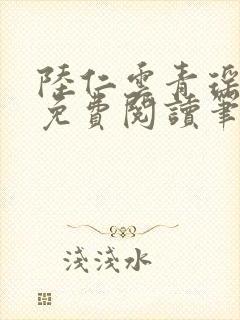 陸仁雲青瑶
免費閱讀筆
淺淺水